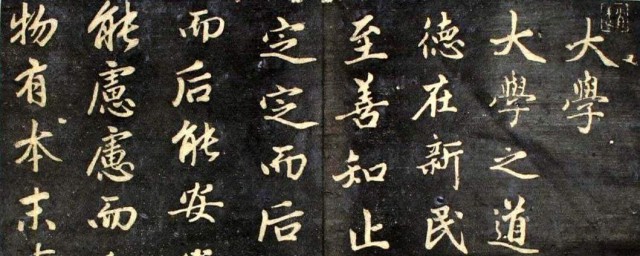 大學
大學之道
德在新民
至善知止
定定而后
而后能安
能慮慮而
物有本末